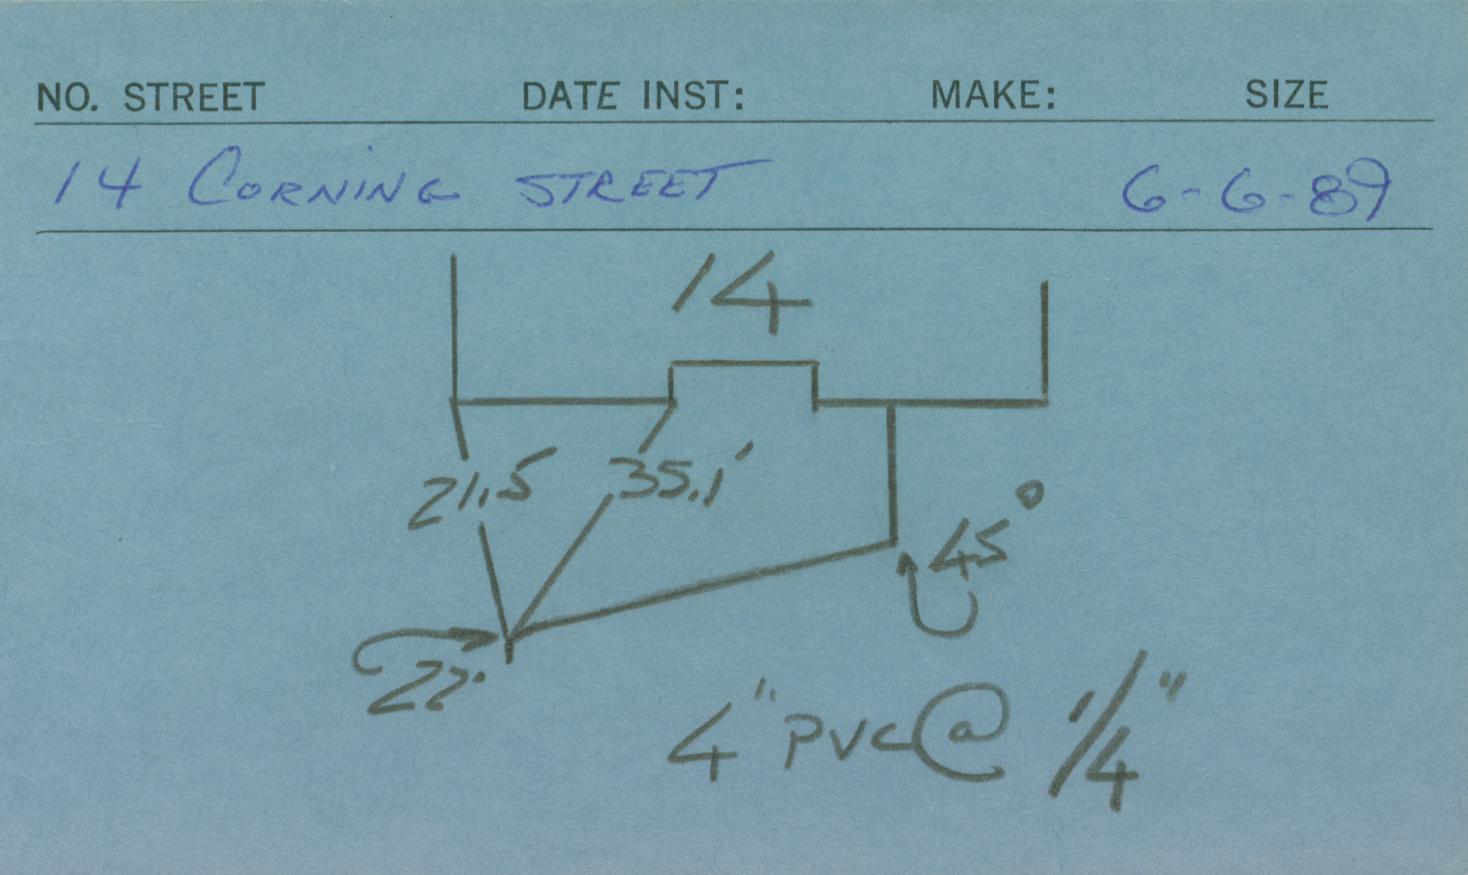 NO. STREET DATE INST: MAKE: SIZE
14 CORNING STREET 6-6-89
14
21.5 35.1'
45°
22°
4" PVC @ 1/4"